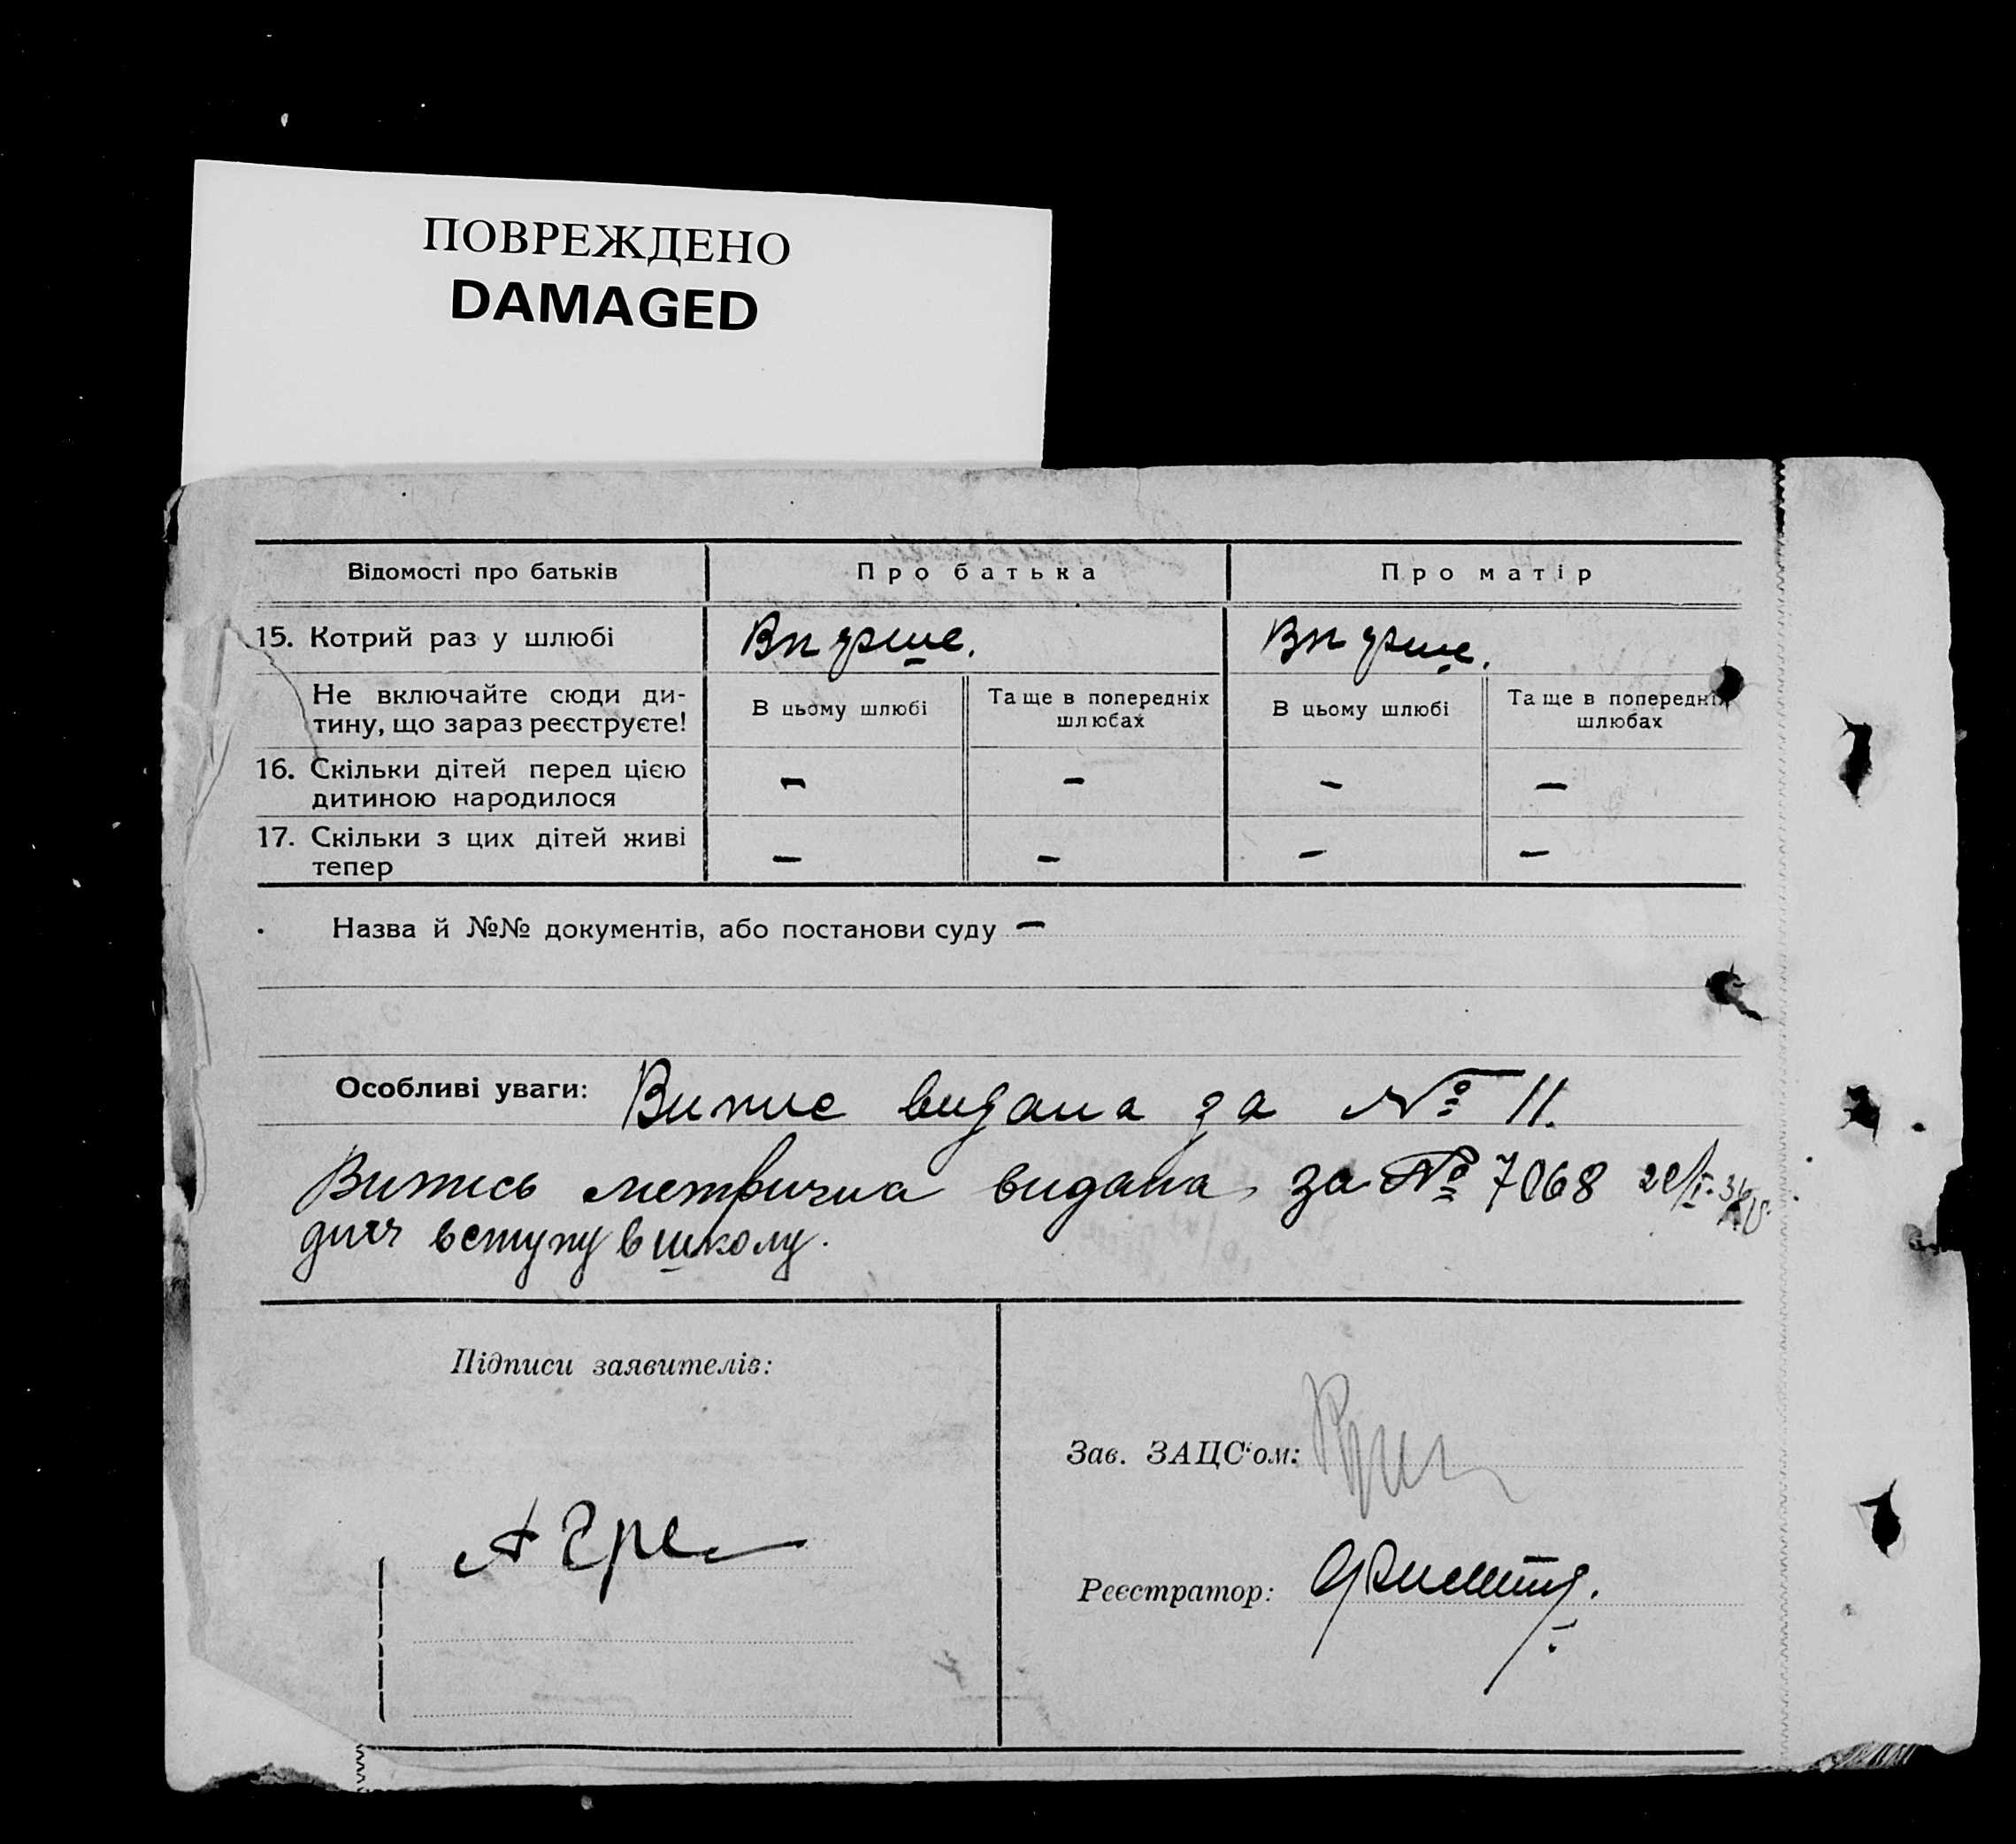 ПОВРЕЖДЕНО
DAMAGED
Відомості про батьків Про батька Про матір
15. Котрий раз у шлюбі Вперше. Вперше.
Не включайте сюди ди-
тину, що зараз реєструєте! В цьому шлюбі Та ще в попередніх шлюбах В цьому шлюбі Та ще в попередніх шлюбах
16. Скільки дітей перед цією
дитиною народилося – – – –
17. Скільки з цих дітей живі
тепер – – – –
Назва й №№ документів, або постанови суду –
Особливі уваги: Випис видана за № 11.
Витись метрична видана за № 7068
для вступу в школу.
Підписи заявителів:
Зав. ЗАЦС'ом:
Реєстратор: